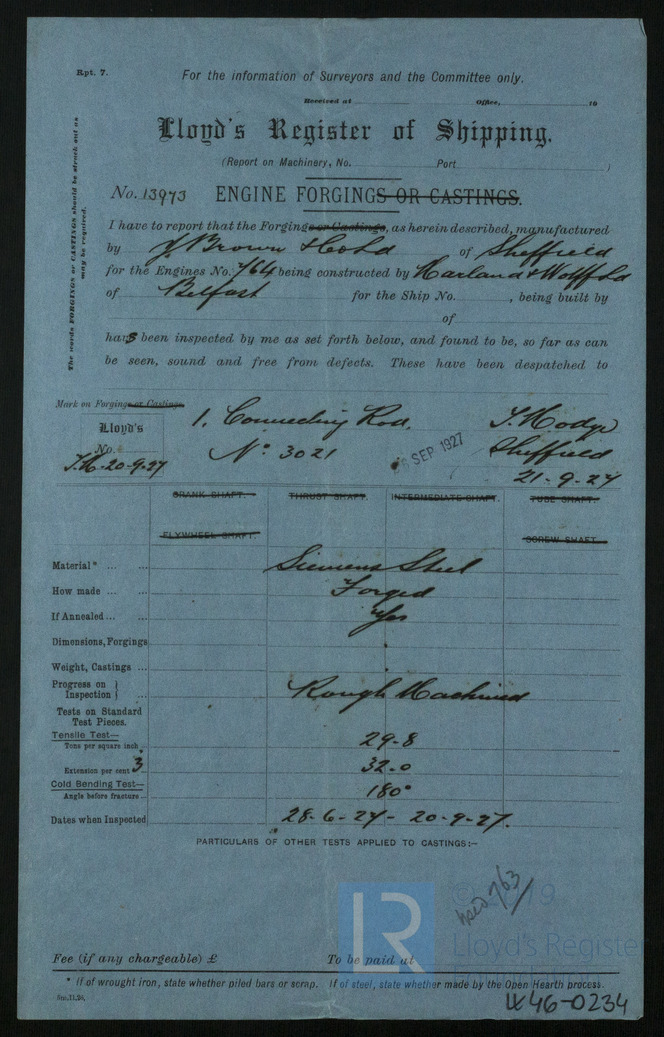 Rpt. 7.
For the information of Surveyors and the Committee only.
Received at Office, 19
Lloyd's Register of Shipping.
(Report on Machinery, No. Port )
The words FORGINGS or CASTINGS should be struck out as may be required.
No. 13973 ENGINE FORGINGS OR CASTINGS.
I have to report that the Forgings or Castings, as herein described, manufactured
by J. Brown & Co Ld of Sheffield
for the Engines No. 764 being constructed by Harland & Wolff Ld
of Belfast for the Ship No. , being built by
of
has been inspected by me as set forth below, and found to be, so far as can
be seen, sound and free from defects. These have been despatched to
Mark on Forgings or Castings.
Lloyd's
No.
J.H. 20-9-27
1. Connecting Rod.
No. 3021
SEP 1927
J. Hodge
Sheffield
21-9-27
CRANK SHAFT. THRUST SHAFT. INTERMEDIATE SHAFT. TUBE SHAFT.
FLYWHEEL SHAFT. SCREW SHAFT.
Material* ... ... Siemens Steel
How made ... ... Forged
If Annealed ... ... Yes
Dimensions, Forgings
Weight, Castings ...
Progress on Inspection } ... Rough Machined
Tests on Standard Test Pieces.
Tensile Test—
Tons per square inch 29-8
Extension per cent 3 32-0
Cold Bending Test—
Angle before fracture 180°
Dates when Inspected 28-6-27 - 20-9-27.
PARTICULARS OF OTHER TESTS APPLIED TO CASTINGS:—
used 763/
© 2019
LR
Lloyd's Register
Foundation
Fee (if any chargeable) £ To be paid at
* If of wrought iron, state whether piled bars or scrap. If of steel, state whether made by the Open Hearth process.
5m.11.24.
W46-0234